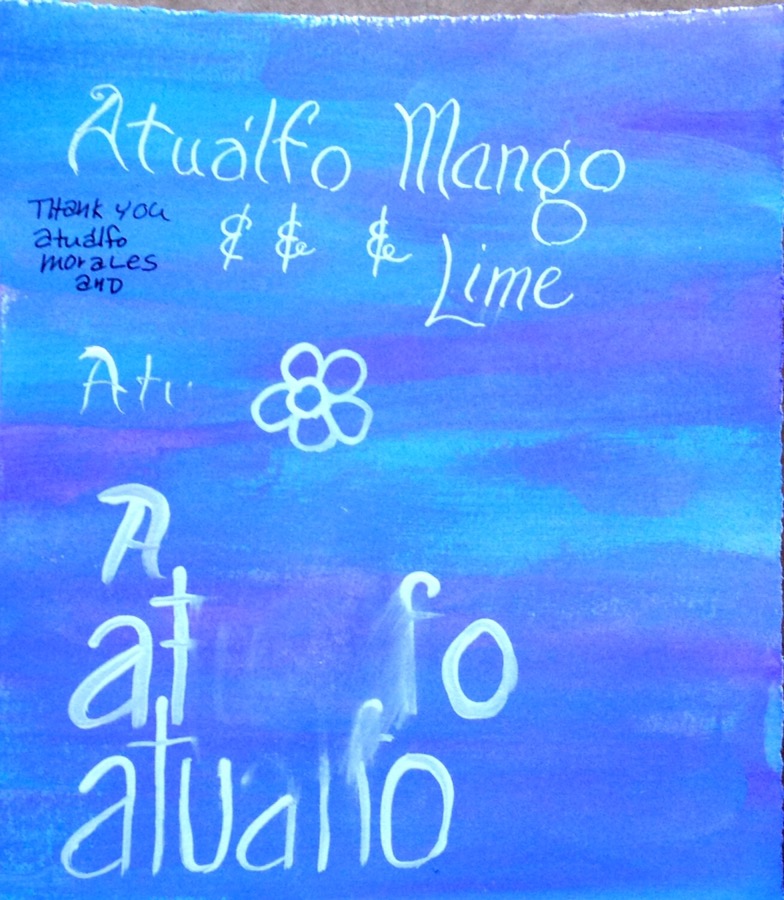 Atuálfo Mango
& & &
Lime
THank you
atuálfo
moraLes
anD
Atu
A
at fo
atualfo